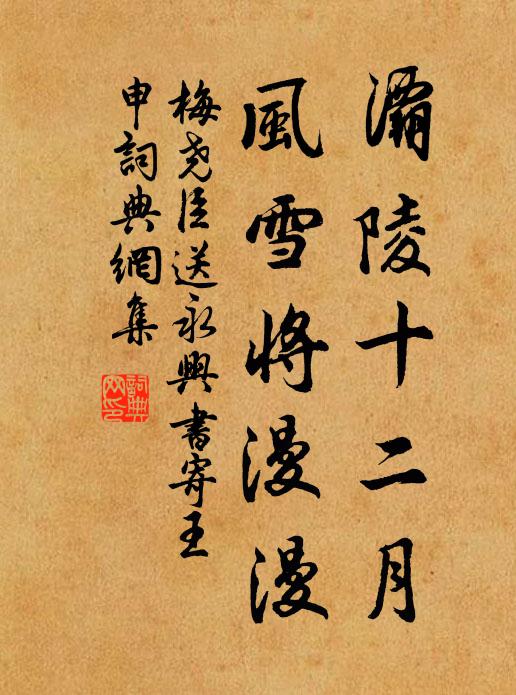 灞陵十二月
風雪將漫漫
梅堯臣送永興書寄王
申詞典網集
詞典网印